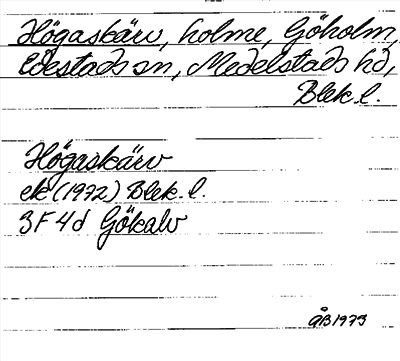 Högaskärv, holme, Göholm,
Edestads sn, Medelstads hd,
Blek. l.
Högaskärv
ek (1972) Blek. l.
3F 4d Gökalv
ÅB 1973